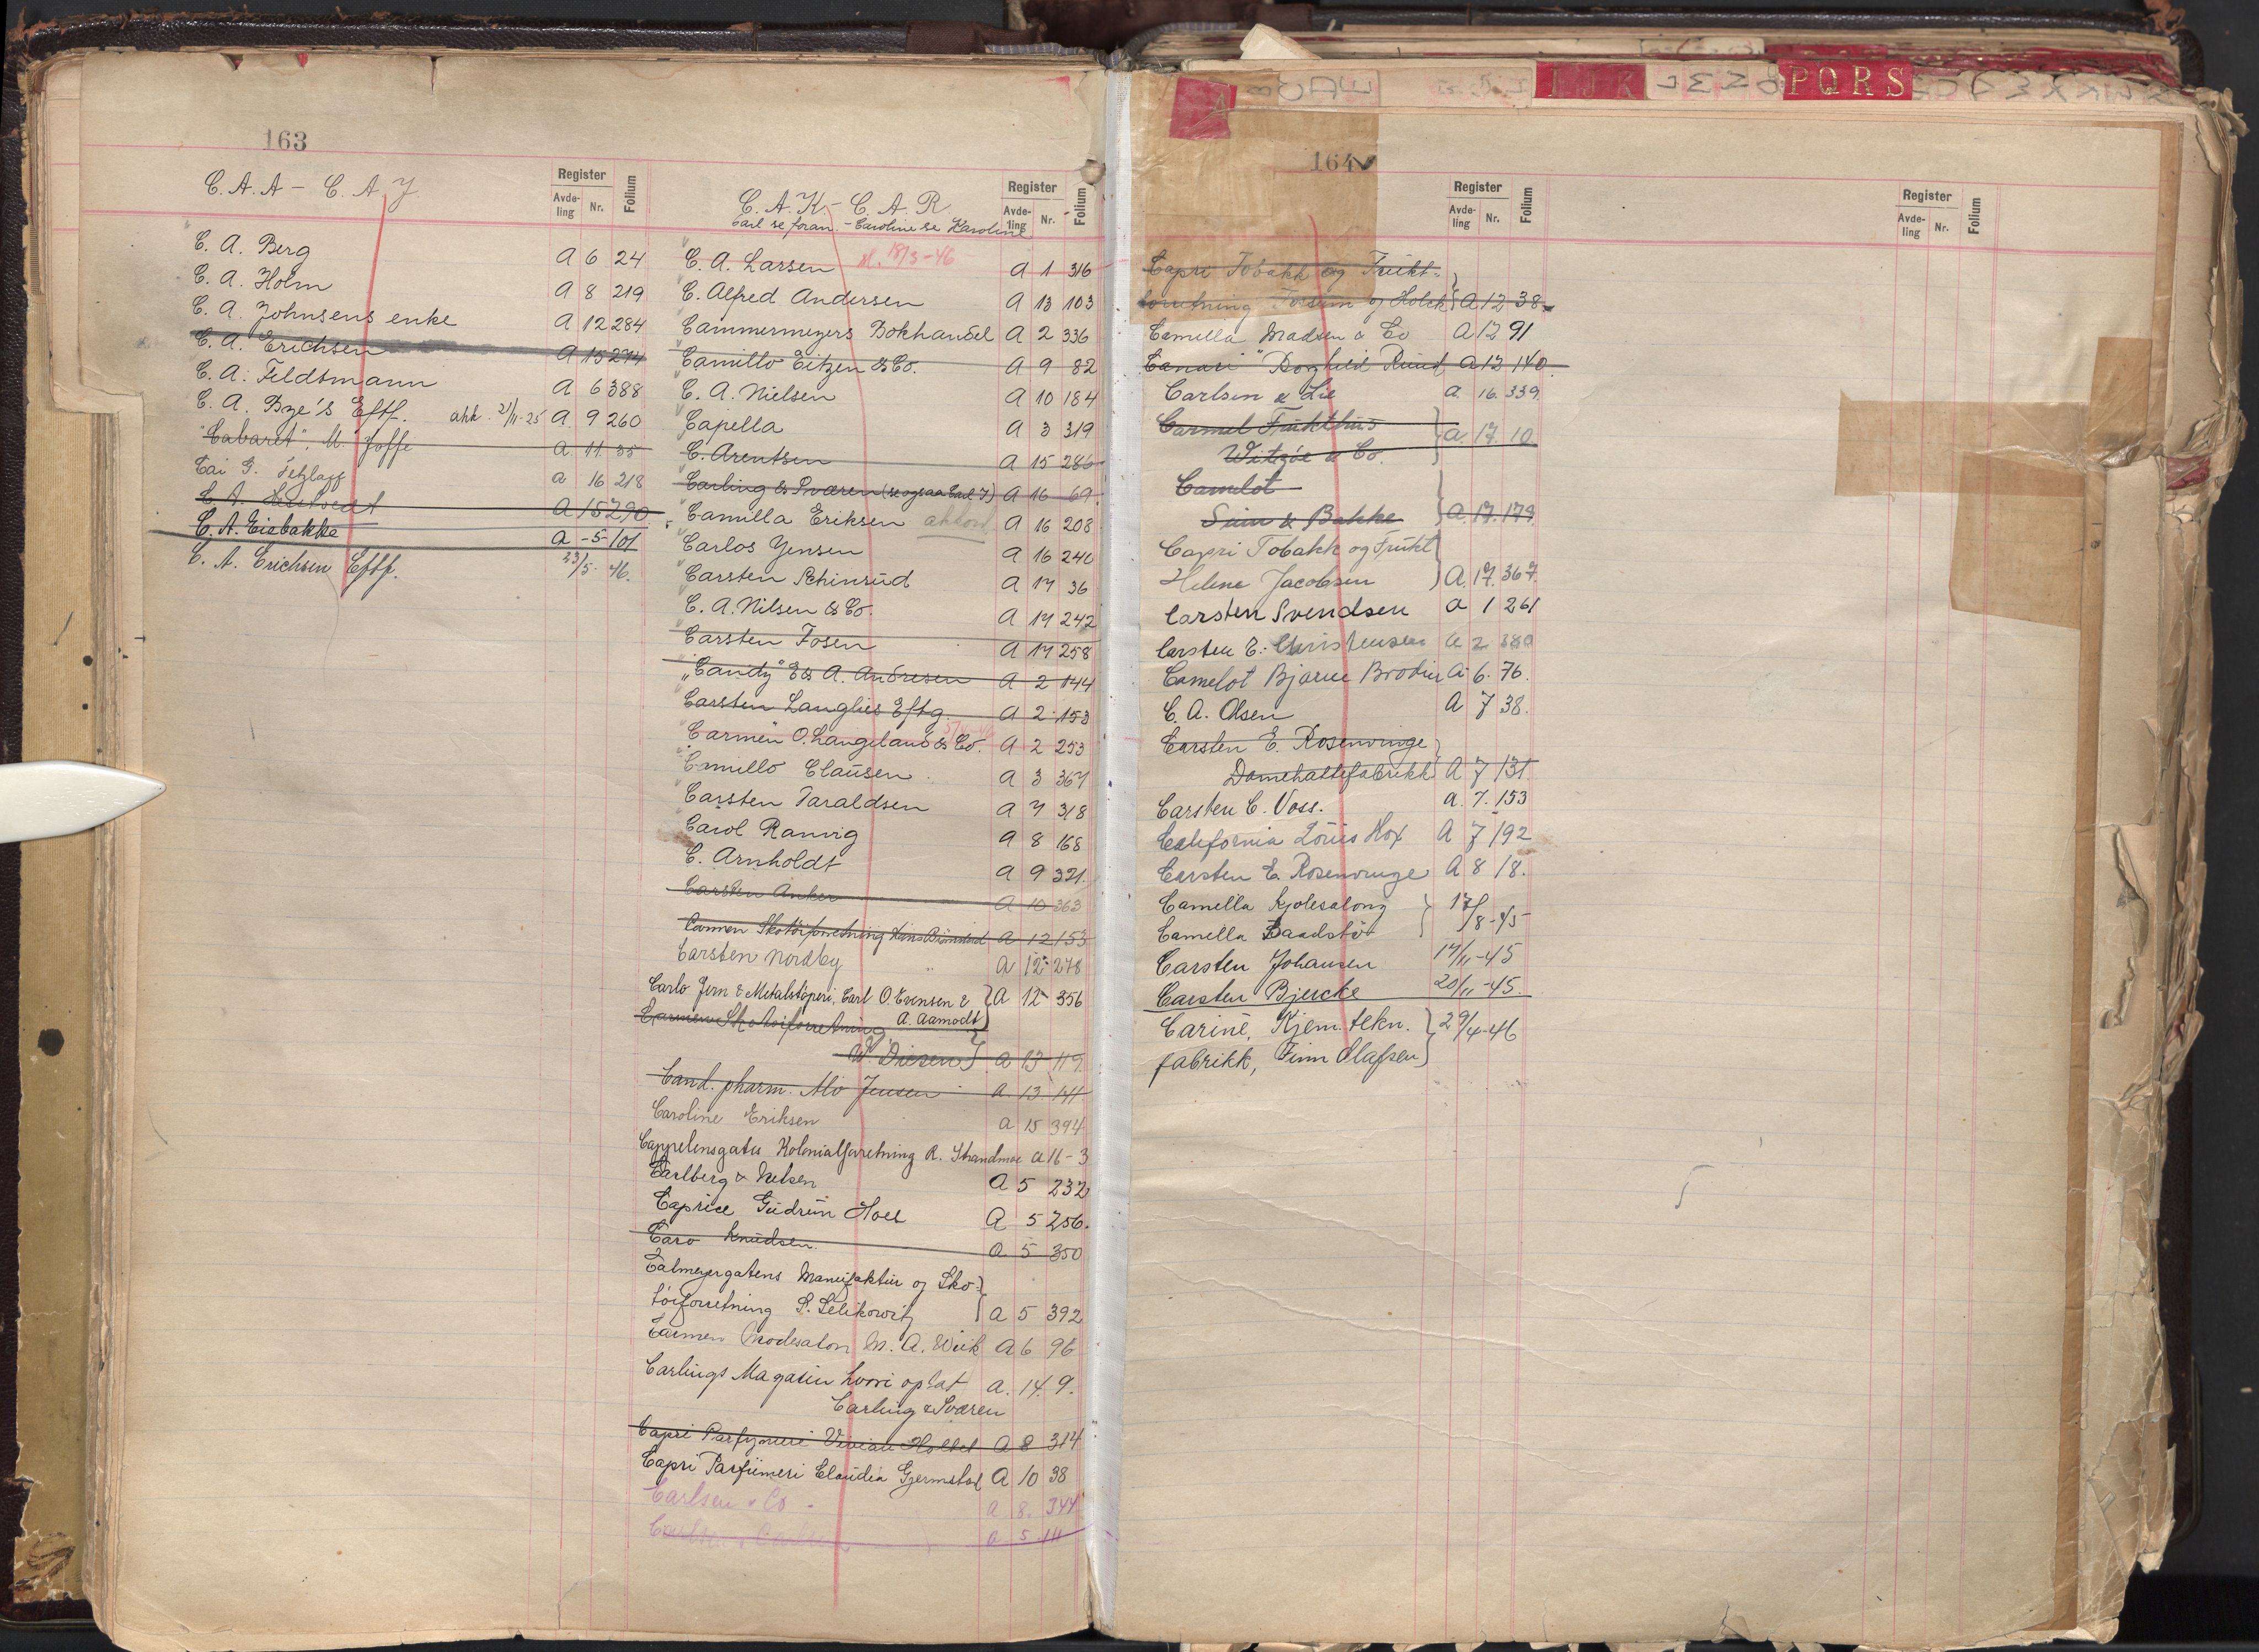 163
C. A. A – C. A. J
Register
Avde-ling Nr. Folium
C. A. Berg A 6 24
C. A. Holm A 8 219
C. A. Johnsens enke A 12 284
C. A. Erichsen A 15 294
C. A. Feldtmann A 6 388
C. A. Bye's Eftf. 21/11-25 A 9 260
"Cabaret", M. Joffe A 11 35
Cai G. Tetzlaff a 16 218
C. A. A 15 290
C. A. Eiebakke a - 5 101
C. A. Erichsen Eftf. 23/5-46.
C. A. K. – C. A. R
Carl se foran. – Caroline se Karoline
Register
Avde-ling Nr. Folium
C. A. Larsen 18/3-46 A 1 316
C. Alfred Andersen A 13 103
Cammermeyers Bokhandel A 2 336
Camillo Eitzen & Co. A 9 82
C. A. Nielsen A 10 184
Capella A 3 319
C. Arentsen A 15 286
Carling & Sværen (se ogsaa Carl J) A 16 69
Camilla Eriksen A 16 208
Carlos Jensen A 16 240
Carsten Schinrud A 17 36
C. A. Nilsen & Co. A 17 242
Carsten Fosen A 17 258
"Candy" E & A. Andresen A 2 144
Carsten Langlies Eftg. A 2 153
"Carmen" O. Langeland & Co. A 2 253
Camillo Clausen A 3 367
Carsten Taraldsen A 7 318
Carol Ranvig A 8 168
C. Arnholdt A 9 321.
Carsten Anker A 10 363
Carmen Skotøiforretning Hans A 12 153
Carsten Nordby A 12 278
Carlo Jern & Metalstøperi, Carl O. Evensen & A. Aamodt A 12 356
Carmen Skotøiforretning
W. Diesen A 13 119.
Cand. pharm. Alv Jensen A. 13 141
Caroline Eriksen a 15 394
Cappelensgates Kolonialforretning R. Strandmoe A 16 - 3
Carlberg & Nelsen A 5 232
Caprice Gudrun Hoel A 5 256.
Caro Knudsen. A 5 350
Calmeyergatens Manufaktur og Sko-
tøiforretning S. Selikowitz A 5 392
Carmen Modesalon M. A. Wiik A 6 96
Carlings Magasin hvori optat a. 14. 9.
Carling & Sværen
Capri Parfymeri Vivian Holtet A 8 314
Capri Parfumeri Claudia Gjermstad A 10 38
Carlsen & Co. a 8. 344
a 5 111
164
Register
Avde-ling Nr. Folium
Capri Tobakk og Frukt-
forretning Forsum og Holck A 12 38
Camilla Madsen & Co A 12 91
"Canari" Ragnhild Ruud A 12 140.
Carlsen & Lie a. 16. 339.
Carmel Frukthus
Witzøe & Co. a. 17. 10
Camelot
Siim & Bakke A. 17. 179
Capri Tobakk og Frukt
Helene Jacobsen A. 17. 367.
Carsten Svendsen a 1 261
Carsten C. Christensen a 2 380
Camelot Bjarne Brodin A 6. 76.
C. A. Olsen A 7 38.
Carsten E. Rosenvinge
Damehattefabrikk A 7 131.
Carsten C. Voss. a. 7. 153
California Louis Hox A 7 192
Carsten E. Rosenvinge A 8 18.
Camella Kjolesalong
Camella 17/8-45
Carsten Johansen 17/11-45
Carsten Bjercke 20/11-45.
Carine, Kjem. tekn.
fabrikk, Finn Olafsen 29/4-46
Register
Avde-ling Nr. Folium
A
I J K
P Q R S